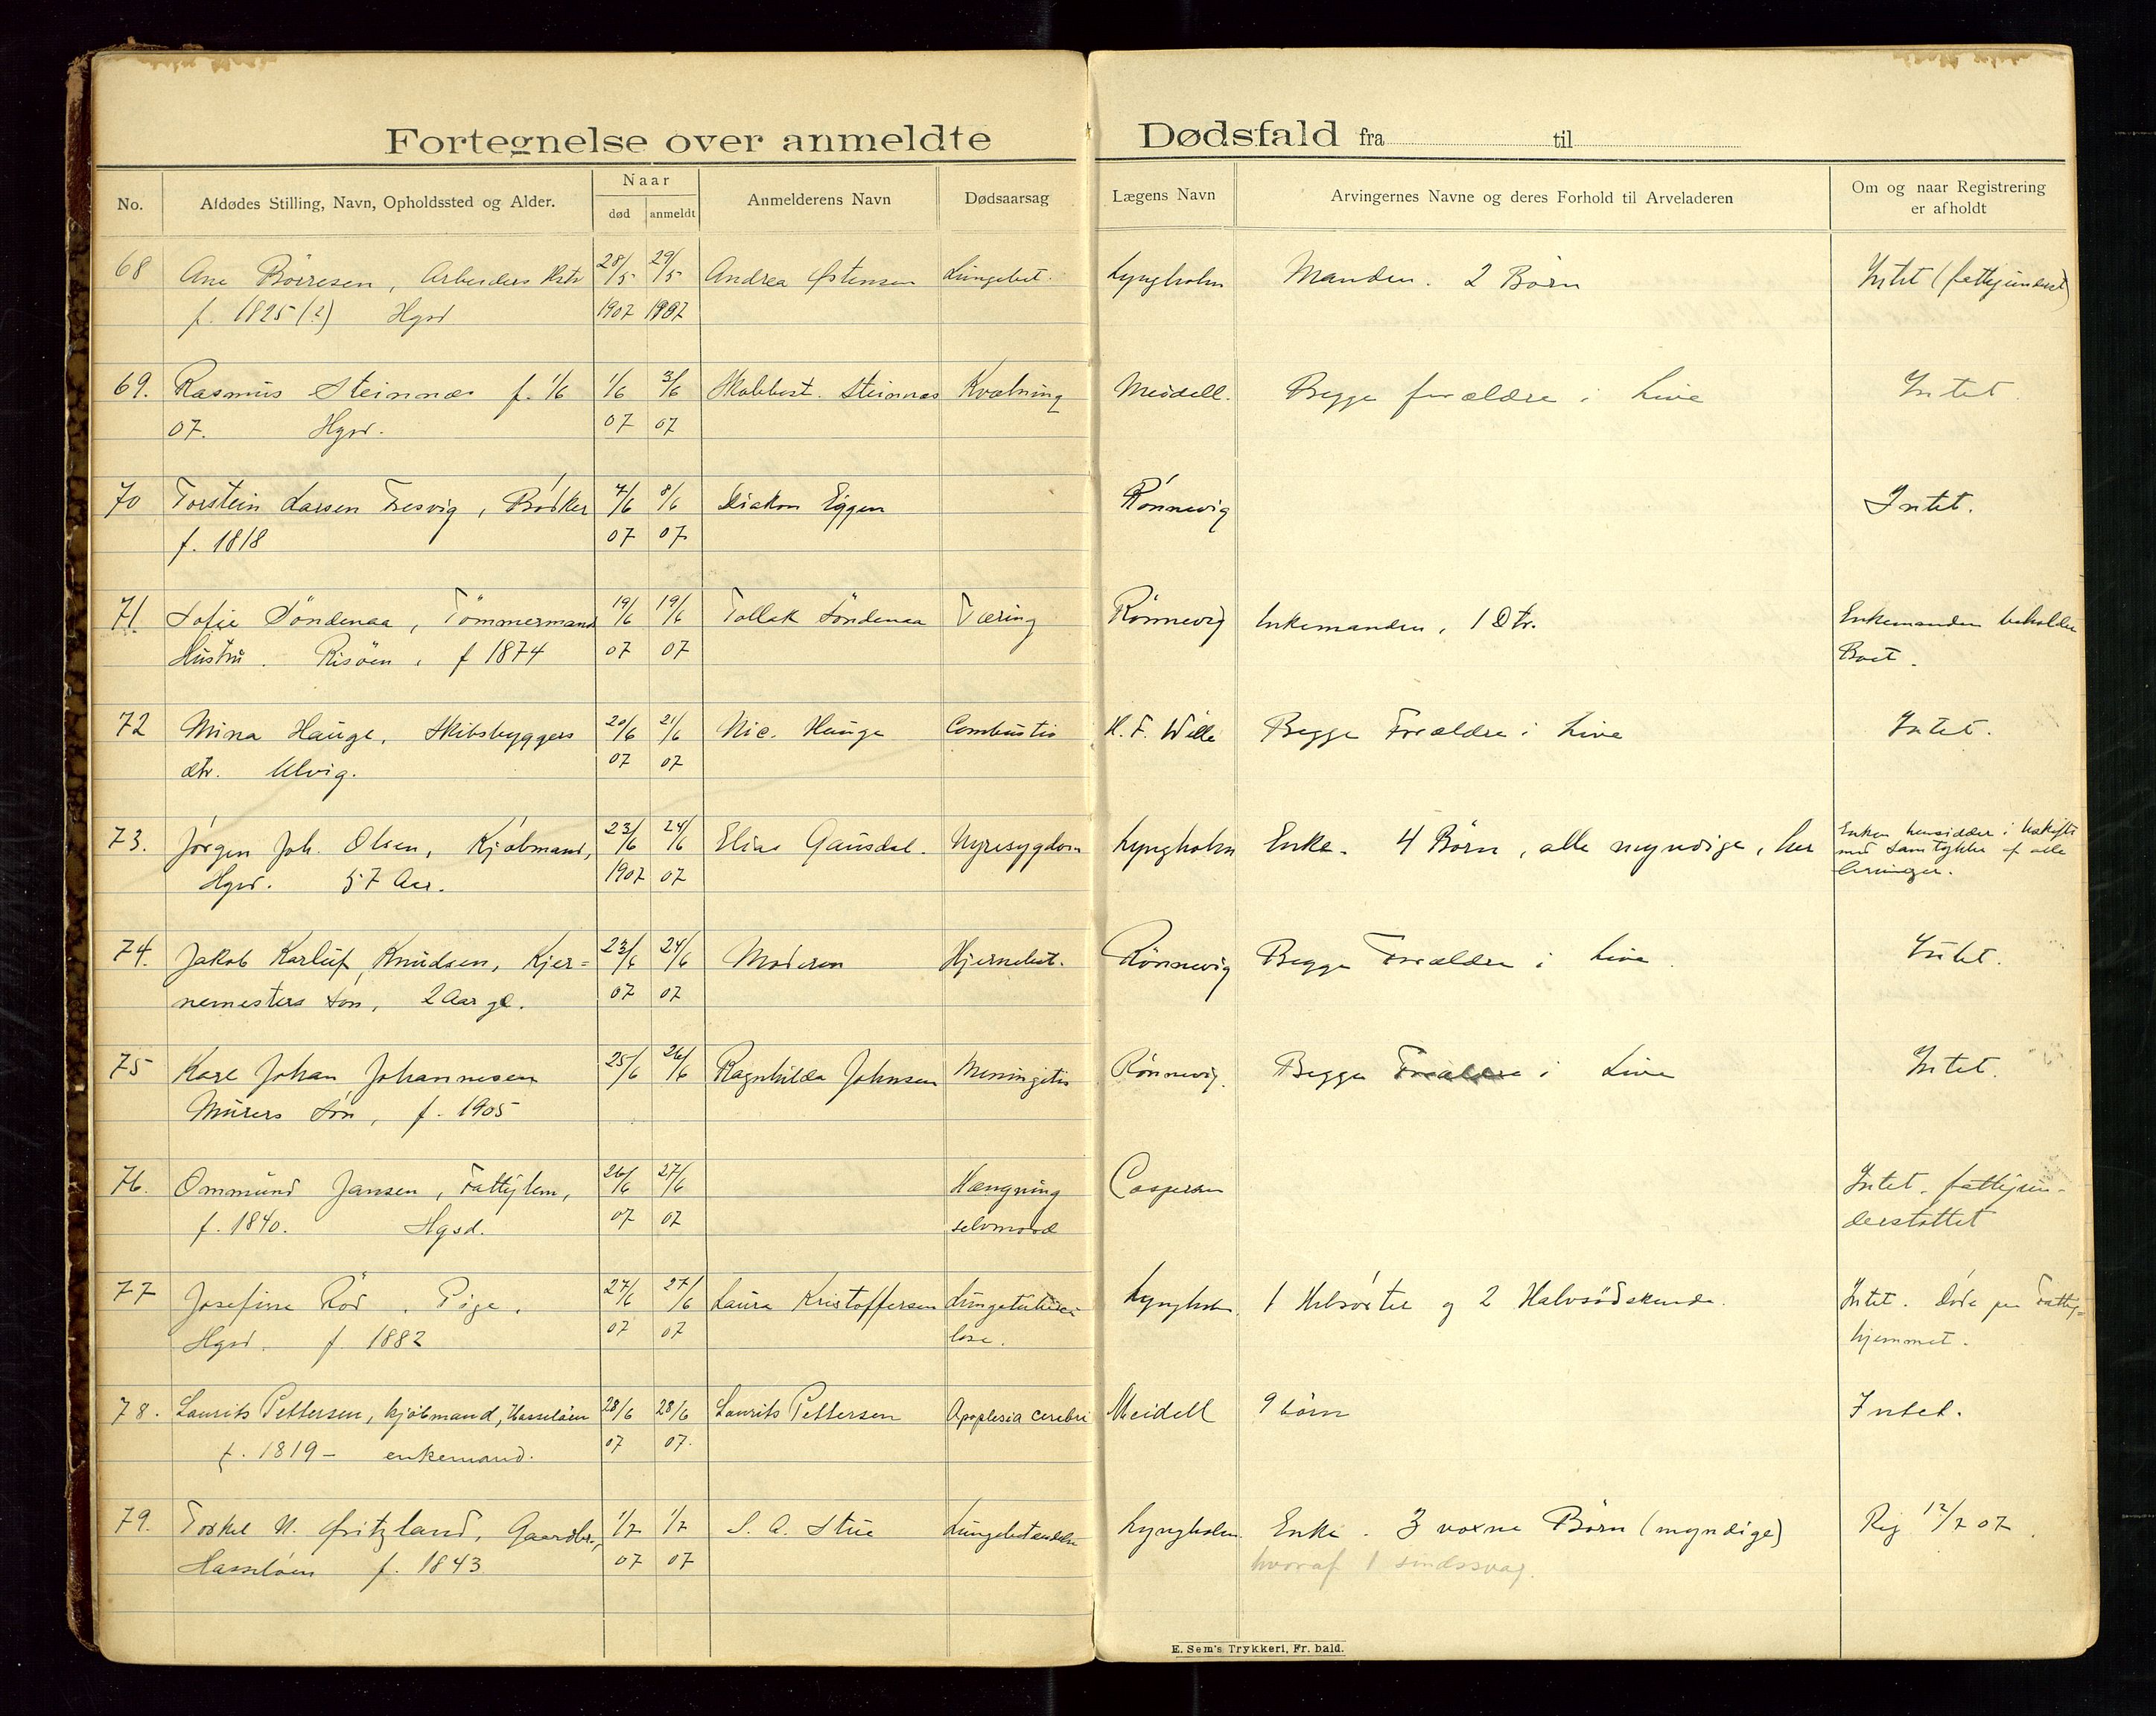 Fortegnelse over anmeldte Dødsfald fra til
No. Afdødes Stilling, Navn, Opholdssted og Alder. Naar død anmeldt Anmelderens Navn Dødsaarsag Lægens Navn Arvingernes Navne og deres Forhold til Arveladeren Om og naar Registrering er afholdt
68 Ane Börresen, Arbeiders Hstr 28/5 29/5 Andrea Østensen Lungebet. Lyngholm Manden. 2 Börn Intet (fattigunderst)
f. 1825 (?) Hgsd 1907 1907
69. Rasmus Steinnæs f. 1/6 1/6 3/6 Steinnæs Kvælning Meidell. Begge forældre i Live Intet.
07. Hgsd. 07 07
70 Torstein Larsen Tresvig, Bödker 7/6 8/6 Diakon Eggen Rönnevig Intet.
f. 1818 07 07
71. Sofie Söndenaa, Tömmermand 19/6 19/6 Tollak Söndenaa Tæring Rönnevig Enkemanden, 1 Dtr. Enkemanden beholder
Hustru. Risöen, f 1874 07 07 Boet.
72 Mina Hauge, Skibsbyggers 20/6 21/6 Nic. Hauge Combustio H. F. Wille Begge Forældre i Live Intet.
dtr. Ulvig. 07 07
73. Jörgen Joh. Olsen, Kjöbmand, 23/6 24/6 Elias Gausdal. Nyresygdom Lyngholm Enke. 4 Börn, alle myndige, her Enken hensidder i Uskifte
med Samtykke af alle
Hgsd. 57 Aar. 1907 07 Arvinger.
74. Jakob Karluf Knudsen, Kjer= 23/6 24/6 Moderen Hjernebet. Rönnevig Begge Forældre i Live. Intet.
nemesters Sön, 2 Aar gl. 07 07
75 Karl Johan Johannesen 25/6 26/6 Ragnhilda Johnsen Meningitis Rönnevig. Begge Forældre i Live Intet.
Murers Sön, f. 1905
76. Ommund Jansen, Fattiglem, 26/6 27/6 Hængning Caspersen Intet. fattigun-
f. 1840. Hgsd. 07 07 selvmord derstöttet
77 Josefine Röd, Pige. 27/6 27/6 Laura Kristoffersen Lungetuberku Lyngholm. 1 Helsöster og 2 Halvsödskende. Intet. Döde paa Fattig=
Hgsd. f. 1882 07 07 lose. hjemmet.
78. Laurits Pettersen, kjöbmand, Hasselöen 28/6 28/6 Laurits Pettersen Apoplexia cerebri Meidell 9 börn Intet.
f. 1819 - enkemand. 07 07.
79. Torkel N. Gritzland, Gaardbr., 1/7 1/7 S. A. Stue Lungebetændelse Lyngholm. Enke. 3 voxne Börn (myndige) Reg 12/7 07.
Hasselöen f. 1843 07 07 hvoraf 1 sindssvag.
E. Sem's Trykkeri, Fr. hald.